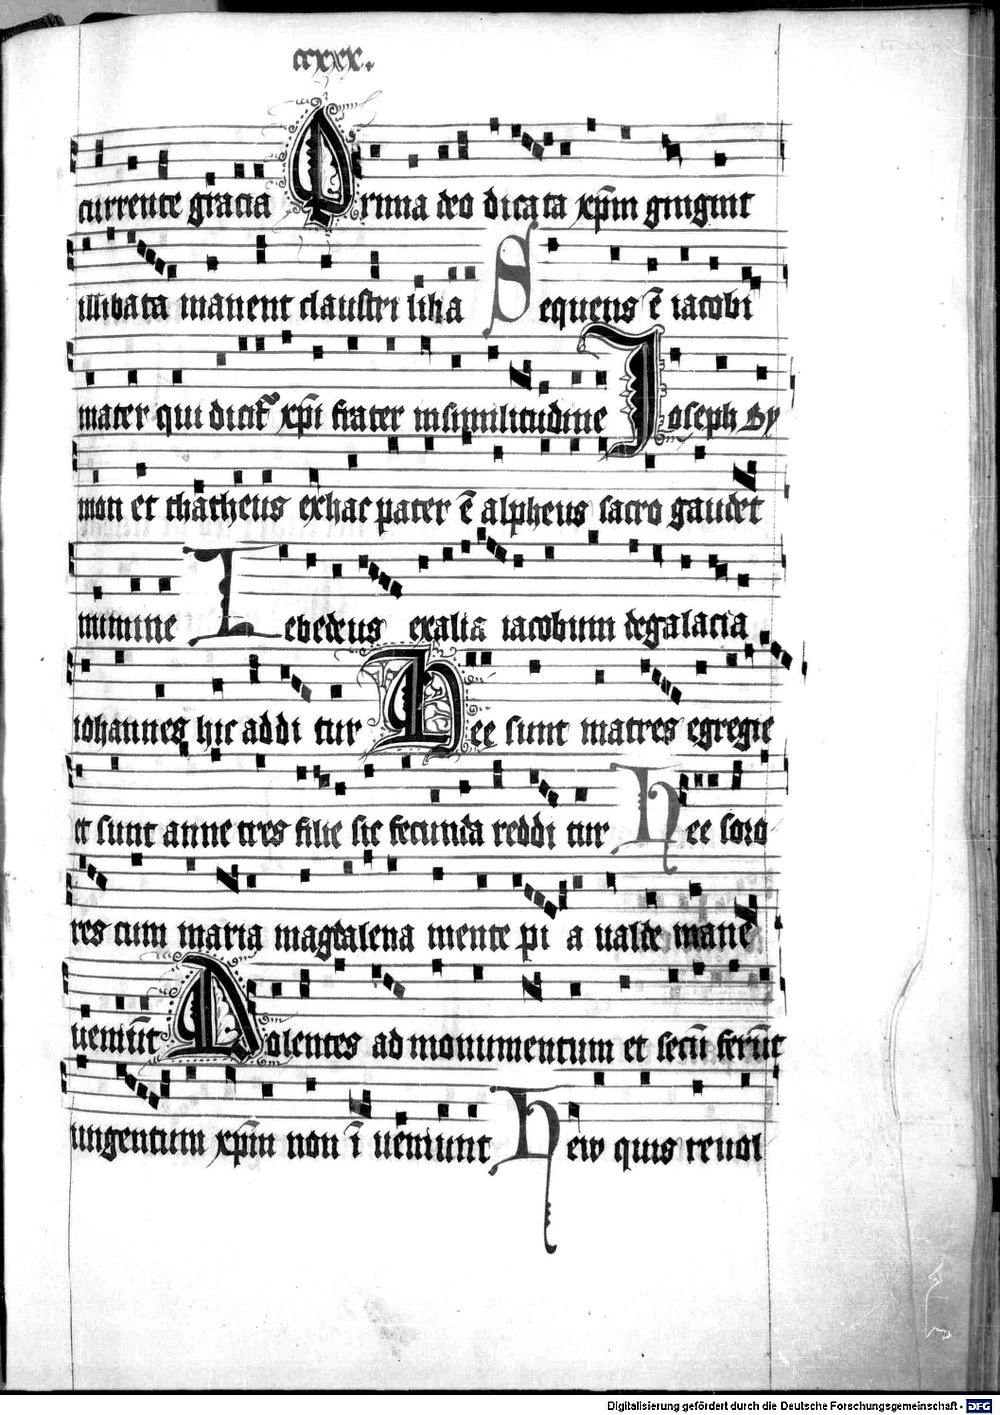 ccxxx.
currente gracia Prima deo dicata xp̄m gingnit
illibata manent claustri lilia Sequens ē iacobi
mater qui dicit᷑ xp̄i frater insimilitudine Joseph Sy
mon et thatheus exhac pater ē alpheus sacro gaudet
numine Zebedeus exalia iacobum degalacia
iohannes hic addi tur Hee sunt matres egregie
et sunt anne tres filie sic fecunda reddi tur Hee soro
res cum maria magdalena mente pi a valde mane
veniūt Volentes ad monumentum et secū ferūt
ungentum xp̄m non ī veniunt Hew quis revol
Digitalisierung gefördert durch die Deutsche Forschungsgemeinschaft - DFG